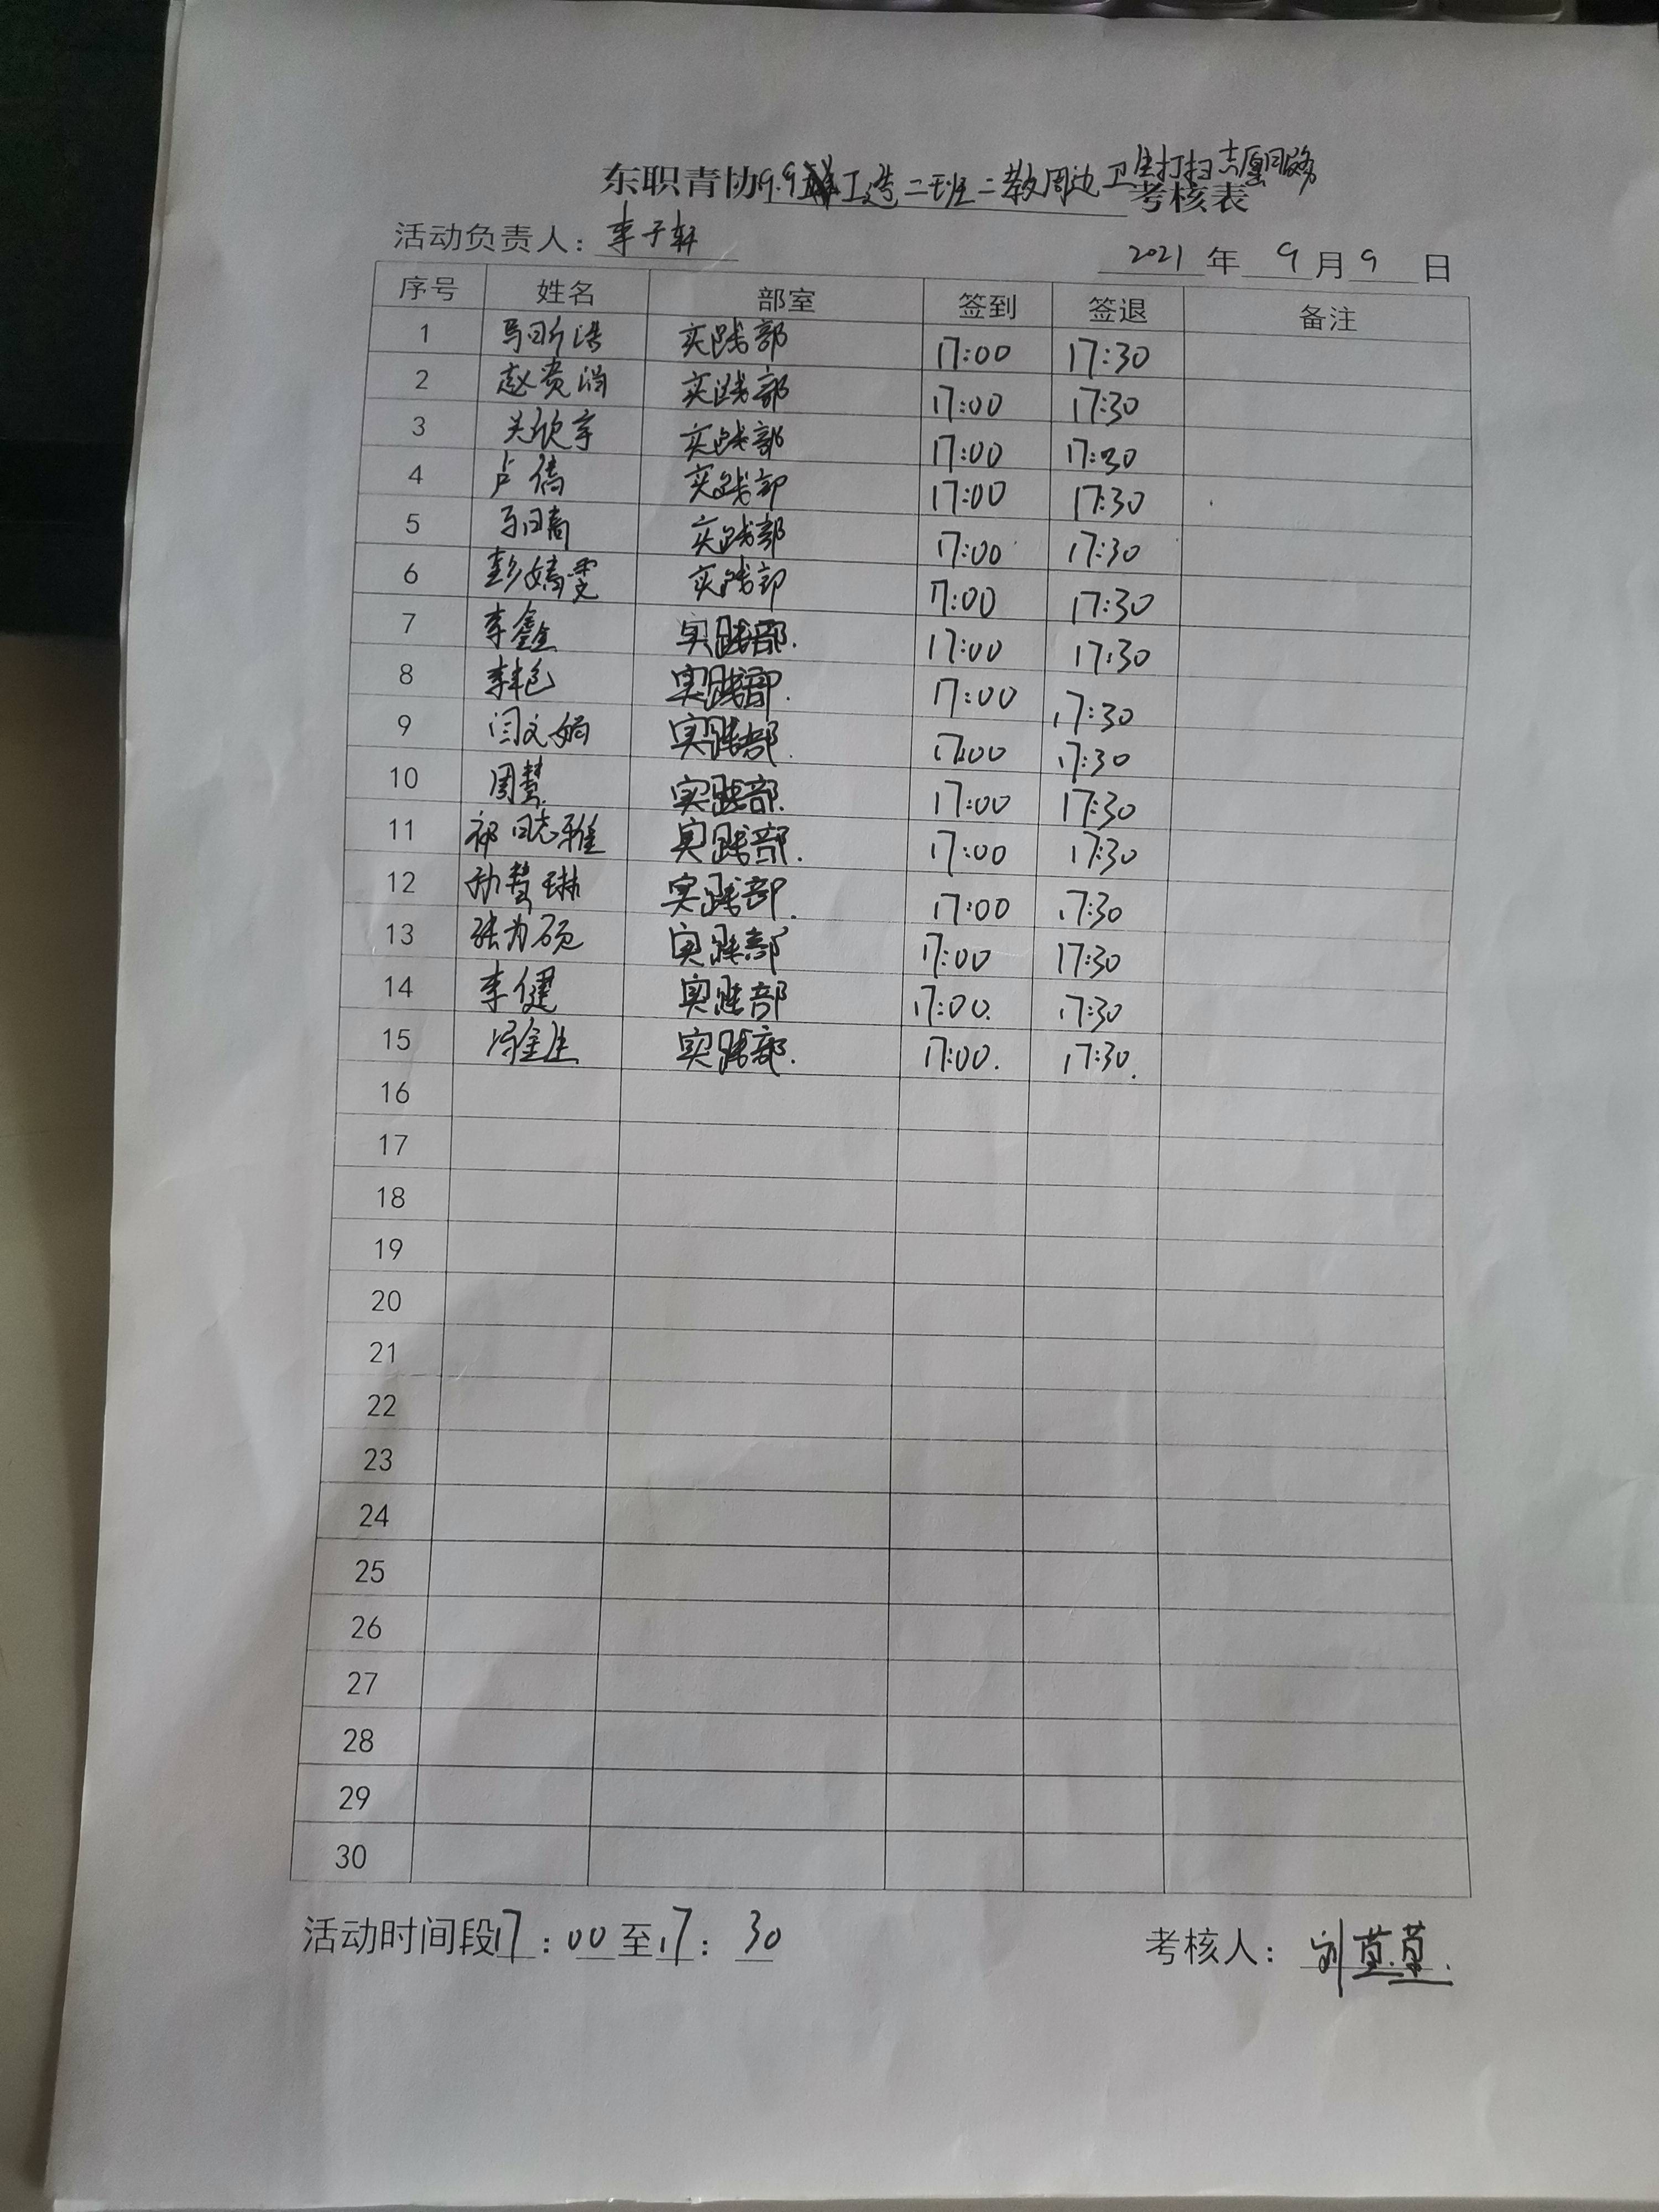 东职青协9.9工造二班二教周边卫生打扫志愿服务考核表
活动负责人：李子轩 2021年9月9日
序号 姓名 部室 签到 签退 备注
1 马昕浩 实践部 17:00 17:30
2 赵贵 实践部 17:00 17:30
3 关欣宇 实践部 17:00 17:30
4 卢倩 实践部 17:00 17:30
5 实践部 17:00 17:30
6 彭嫱雯 实践部 17:00 17:30
7 李鑫 实践部. 17:00 17:30
8 李艳 实践部. 17:00 17:30
9 闫文娟 实践部. 17:00 17:30
10 周慧 实践部. 17:00 17:30
11 祁雅 实践部. 17:00 17:30
12 孙慧琳 实践部. 17:00 17:30
13 张为硕 实践部 17:00 17:30
14 李健 实践部 17:00. 17:30
15 冯金生 实践部. 17:00. 17:30.
16
17
18
19
20
21
22
23
24
25
26
27
28
29
30
活动时间段17:00至17:30 考核人：刘草草.